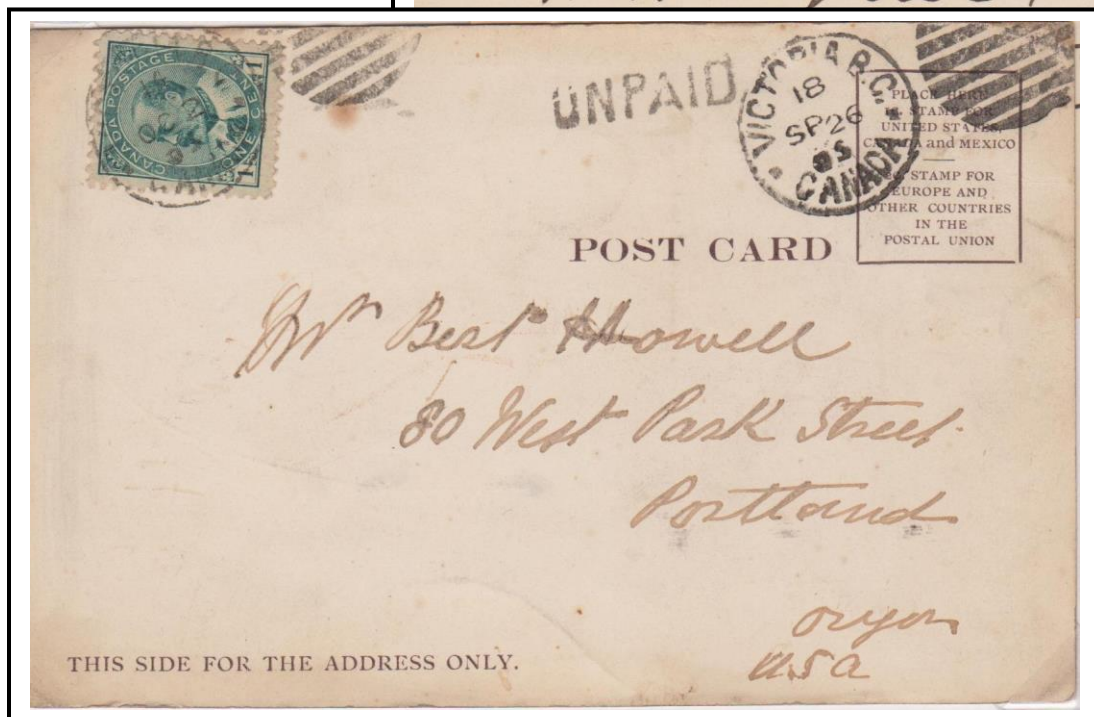 CANADA POSTAGE
ONE CENT
UNPAID
VICTORIA B.C.
18
SP 26
05
CANADA
PLACE HERE
STAMP FOR
UNITED STATES,
CANADA and MEXICO
STAMP FOR
EUROPE AND
OTHER COUNTRIES
IN THE
POSTAL UNION
POST CARD
Mr Bert Howell
80 West Park Street
Portland
Oregon
USA
THIS SIDE FOR THE ADDRESS ONLY.